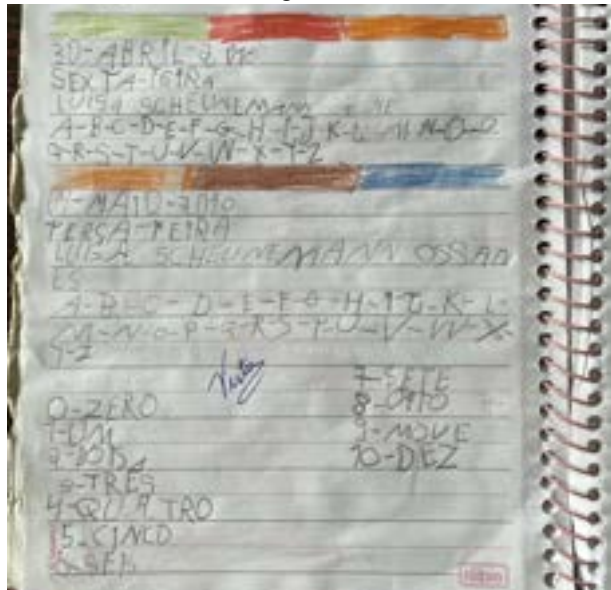 30-ABRIL-2010
SEXTA-FEIRA
LUISA SCHEUNEMANN
A-B-C-D-E-F-G-H-I-J-K-L-M-N-O-P-
Q-R-S-T-U-V-W-X-Y-Z
MAIO-2010
TERSA-FEIRA
LUISA SCHEUNEMANN
A-B-C-D-E-F-G-H-I-J-K-L-
M-N-O-P-Q-R-S-T-U-V-W-X-
Y-Z
Visto
0-ZERO
1-UM
3-TRÊS
4-QUATRO
5-CINCO
7-SETE
8-OITO
9-NOVE
10-DIEZ